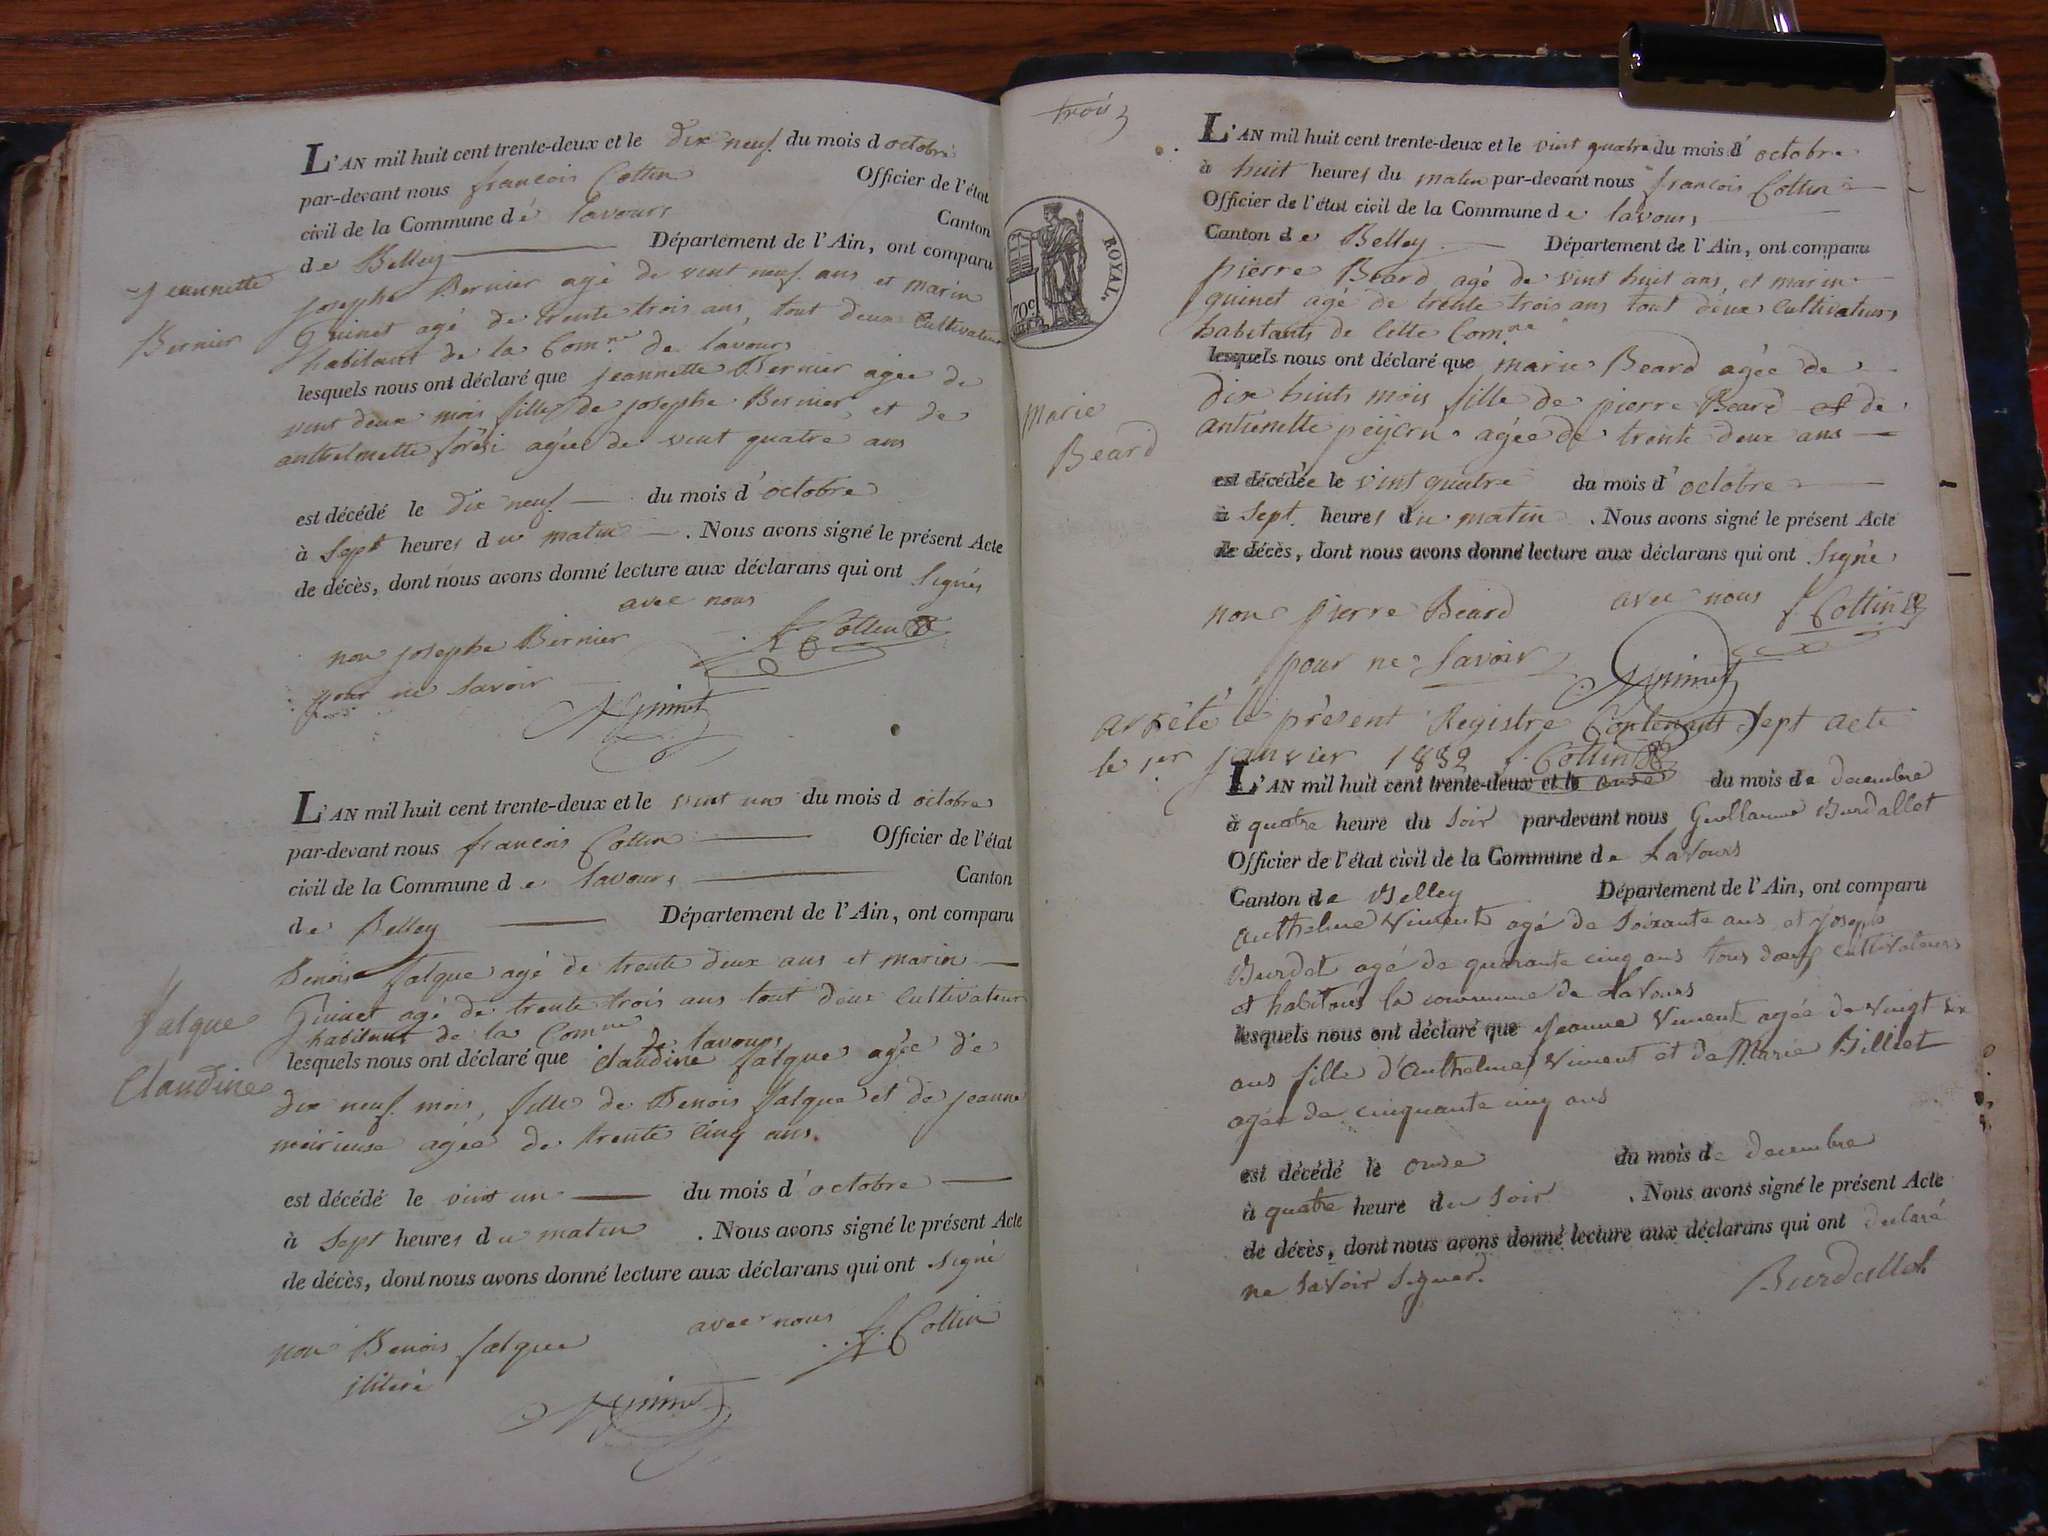 L'AN mil huit cent trente-deux et le dix neuf du mois d octobre
par-devant nous francois Cottin Officier de l'état
civil de la Commune de lavours Canton
de Belley Département de l'Ain, ont comparu
josephe Bernier agé de vint neuf ans et marin
Guinet agé de trente trois ans, tout deux Cultivateur
habitant de la Comne de lavours
lesquels nous ont déclaré que jeannette Bernier agée de
vint deux mois fille de josephe Bernier et de
anthelmette agée de vint quatre ans
est décédé le dix neuf du mois d'octobre
à sept heures du matin . Nous avons signé le présent Acte
de décès, dont nous avons donné lecture aux déclarans qui ont Signés
avec nous
non josephe Bernier f Cottin
pour ne savoir
Jeannette
Bernier
L'AN mil huit cent trente-deux et le vint un du mois d octobre
par-devant nous francois Cottin Officier de l'état
civil de la Commune de lavours Canton
de Belley Département de l'Ain, ont comparu
Benois falque agé de trente deux ans et marin
Guinet agé de trente trois ans tout deux Cultivateur
habitant de la Comne de lavours
lesquels nous ont déclaré que Claudine falque agée de
dix neuf mois, fille de Benois falque et de jeanne
agée de trente cinq ans.
est décédé le vint un du mois d'octobre
à sept heures du matin . Nous avons signé le présent Acte
de décès, dont nous avons donné lecture aux déclarans qui ont signé
avec nous
non Benois falque f. Cottin
ilitéré
falque
Claudine
trois
ROYAL.
70c
L'AN mil huit cent trente-deux et le vint quatre du mois d' octobre
à huit heures du matin par-devant nous francois Cottin
Officier de l'état civil de la Commune de lavours
Canton de Belley Département de l'Ain, ont comparu
pierre Beard agé de vint huit ans, et marin
guinet agé de trente trois ans tout deux Cultivateurs
habitants de cette Comne
lesquels nous ont déclaré que marie Beard agée de
dix huits mois fille de pierre Beard et de
agée de trente deux ans
est décédée le vint quatre du mois d' octobre
à Sept heures du matin . Nous avons signé le présent Acte
de décès, dont nous avons donné lecture aux déclarans qui ont Signé
non pierre Beard avec nous f Cottin
pour ne Savoir
marie
Beard
arrêté le présent Registre Contenant Sept acte
le 1er janvier 1832 f. Cottin
L'AN mil huit cent trente-deux et le onde du mois de decembre
à quatre heure du soir par-devant nous Guillaume Burdallet
Officier de l'état civil de la Commune de Lavours
Canton de Belley Département de l'Ain, ont comparu
Anthelme Vincent agé de soixante ans et joseph
Burdet agé de quarante cinq ans tous deux cultivateurs
et habitans la commune de Lavours
lesquels nous ont déclaré que Jeanne Vincent agée de vingt six
ans fille d'Anthelme Vincent et de Marie Billiet
agée de cinquante cinq ans
est décédé le onde du mois de decembre
à quatre heure du soir . Nous avons signé le présent Acte
de décès, dont nous avons donné lecture aux déclarans qui ont declaré
ne savoir signer. Burdallet